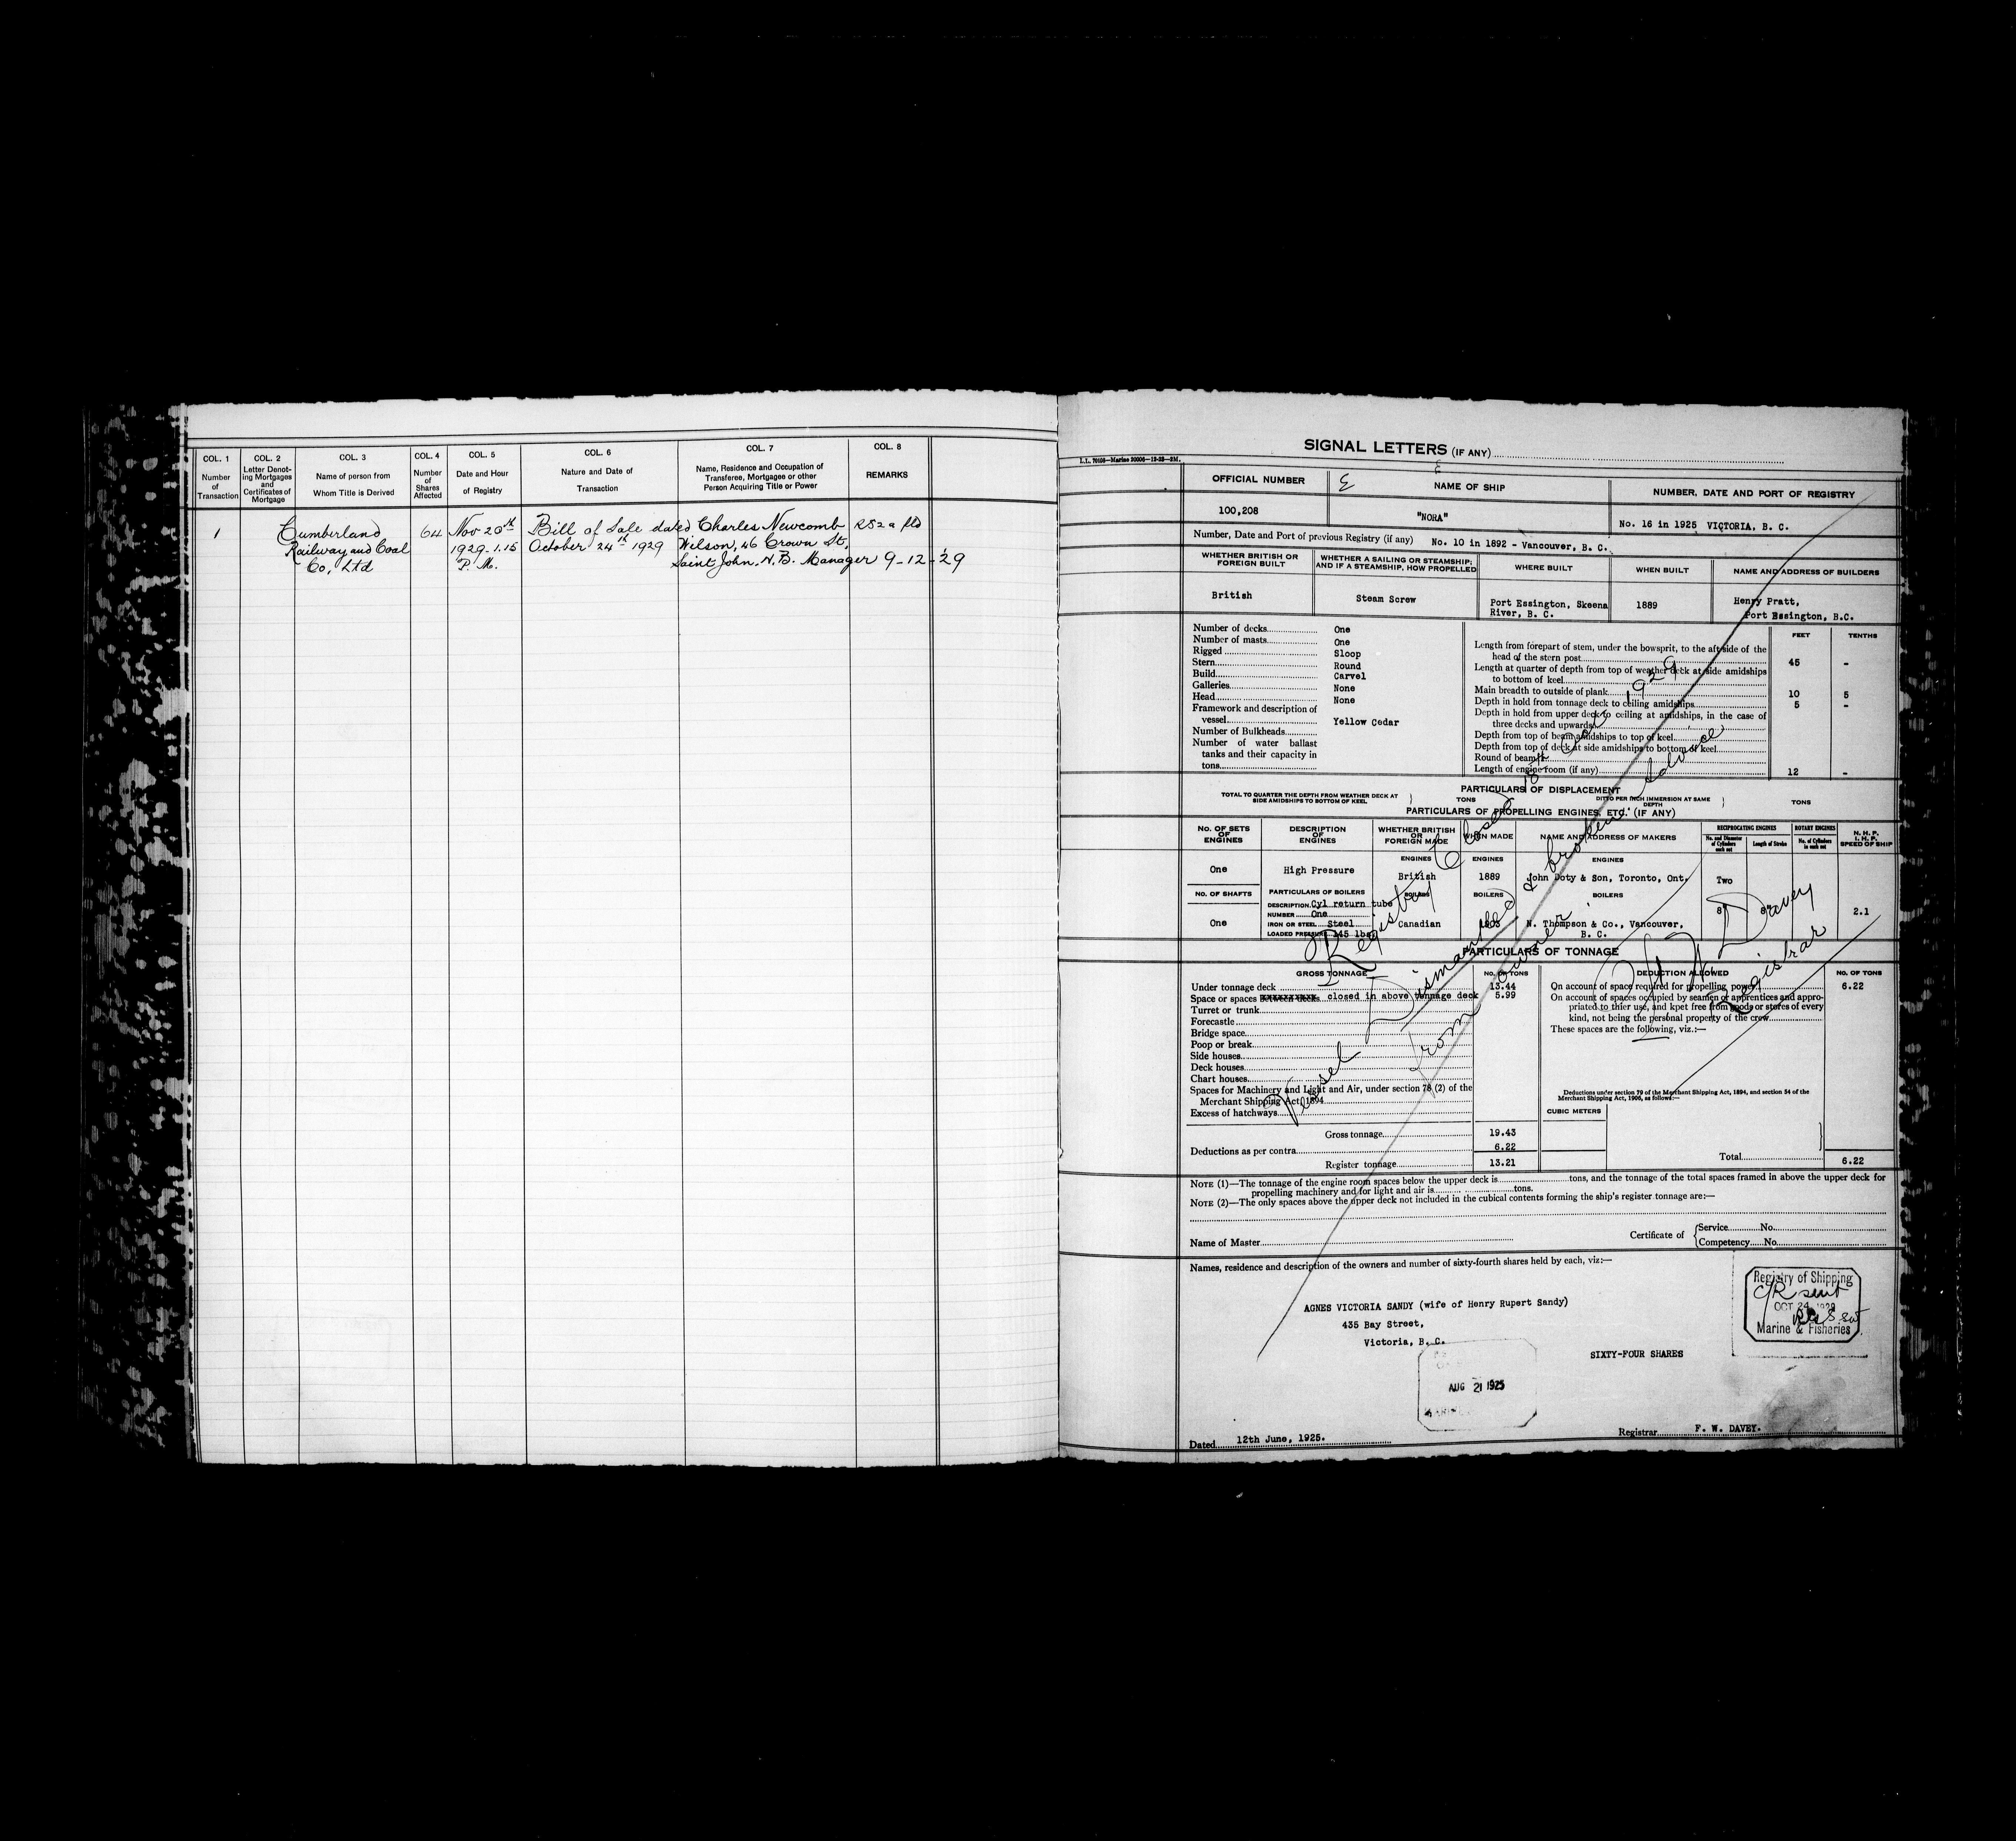 COL. 1 COL. 2 COL. 3 COL. 4 COL. 5 COL. 6 COL. 7 COL. 8
Number of Transaction
Letter Denoting Mortgages and Certificates of Mortgage
Name of person from Whom Title is Derived
Number of Shares Affected
Date and Hour of Registry
Nature and Date of Transaction
Name, Residence and Occupation of Transferee, Mortgagee or other Person Acquiring Title or Power
REMARKS
1 Cumberland 64 Nov 20th Bill of Sale dated Charles Newcomb RS2a fld
Railway and Coal 1929-1.15 October 24th 1929 Wilson, 46 Crown St,
Co, Ltd P.M. Saint John, N.B. Manager 9-12-29
SIGNAL LETTERS (IF ANY)
L.L. 70106—Marine 20006—12-23—2M.
OFFICIAL NUMBER NAME OF SHIP NUMBER, DATE AND PORT OF REGISTRY
100,208 "NORA" No. 16 in 1925 VICTORIA, B. C.
Number, Date and Port of previous Registry (if any) No. 10 in 1892 - Vancouver, B. C.
WHETHER BRITISH OR FOREIGN BUILT
WHETHER A SAILING OR STEAMSHIP; AND IF A STEAMSHIP, HOW PROPELLED
WHERE BUILT
WHEN BUILT
NAME AND ADDRESS OF BUILDERS
British Steam Screw Port Essington, Skeena River, B. C. 1889 Henry Pratt, Port Essington, B.C.
Number of decks One
Number of masts One
Rigged Sloop
Stern Round
Build Carvel
Galleries None
Head None
Framework and description of vessel Yellow Cedar
Number of Bulkheads
Number of water ballast tanks and their capacity in tons
FEET TENTHS
Length from forepart of stem, under the bowsprit, to the aft side of the head of the stern post 45 -
Length at quarter of depth from top of weather deck at side amidships to bottom of keel
Main breadth to outside of plank 10 5
Depth in hold from tonnage deck to ceiling amidships 5 -
Depth in hold from upper deck to ceiling at amidships, in the case of three decks and upwards
Depth from top of beam amidships to top of keel
Depth from top of deck at side amidships to bottom of keel
Round of beam
Length of engine room (if any) 12 -
PARTICULARS OF DISPLACEMENT
TOTAL TO QUARTER THE DEPTH FROM WEATHER DECK AT SIDE AMIDSHIPS TO BOTTOM OF KEEL TONS DITTO PER INCH IMMERSION AT SAME DEPTH TONS
PARTICULARS OF PROPELLING ENGINES, ETC. (IF ANY)
NO. OF SETS OF ENGINES
DESCRIPTION OF ENGINES
WHETHER BRITISH OR FOREIGN MADE
WHEN MADE
NAME AND ADDRESS OF MAKERS
RECIPROCATING ENGINES
No. and Diameter of Cylinders each set
Length of Stroke
ROTARY ENGINES
No. of Cylinders in each set
N. H. P. I. H. P. SPEED OF SHIP
ENGINES ENGINES ENGINES
One High Pressure British 1889 John Doty & Son, Toronto, Ont. Two
NO. OF SHAFTS PARTICULARS OF BOILERS BOILERS BOILERS BOILERS
DESCRIPTION Cyl return tube
NUMBER One
One IRON OR STEEL Steel Canadian 1903 N. Thompson & Co., Vancouver, B. C. 8" 8" 2.1
LOADED PRESSURE 145 lbs
PARTICULARS OF TONNAGE
GROSS TONNAGE NO. OF TONS DEDUCTION ALLOWED NO. OF TONS
Under tonnage deck 13.44
Space or spaces between decks closed in above tonnage deck 5.99
Turret or trunk
Forecastle
Bridge space
Poop or break
Side houses
Deck houses
Chart houses
Spaces for Machinery and Light and Air, under section 78 (2) of the Merchant Shipping Act, 1894
Excess of hatchways
Gross tonnage 19.43
Deductions as per contra 6.22
Register tonnage 13.21
On account of space required for propelling power 6.22
On account of spaces occupied by seamen or apprentices and appropriated to thier use, and kpet free from goods or stores of every kind, not being the personal property of the crew
These spaces are the following, viz.:—
Deductions under section 79 of the Merchant Shipping Act, 1894, and section 54 of the Merchant Shipping Act, 1906, as follows:—
CUBIC METERS
Total 6.22
Registry Closed 18th Oct 1929
Vessel Dismantled & broken
from owner. advice
Davey
Registrar
NOTE (1)—The tonnage of the engine room spaces below the upper deck is tons, and the tonnage of the total spaces framed in above the upper deck for propelling machinery and for light and air is tons.
NOTE (2)—The only spaces above the upper deck not included in the cubical contents forming the ship's register tonnage are:—
Name of Master Certificate of Service No.
Competency No.
Names, residence and description of the owners and number of sixty-fourth shares held by each, viz:—
AGNES VICTORIA SANDY (wife of Henry Rupert Sandy)
435 Bay Street,
Victoria, B. C.
SIXTY-FOUR SHARES
Registry of Shipping
C/R sent
OCT 24 1929
Marine & Fisheries
AUG 21 1925
Dated 12th June, 1925. Registrar F. W. DAVEY.